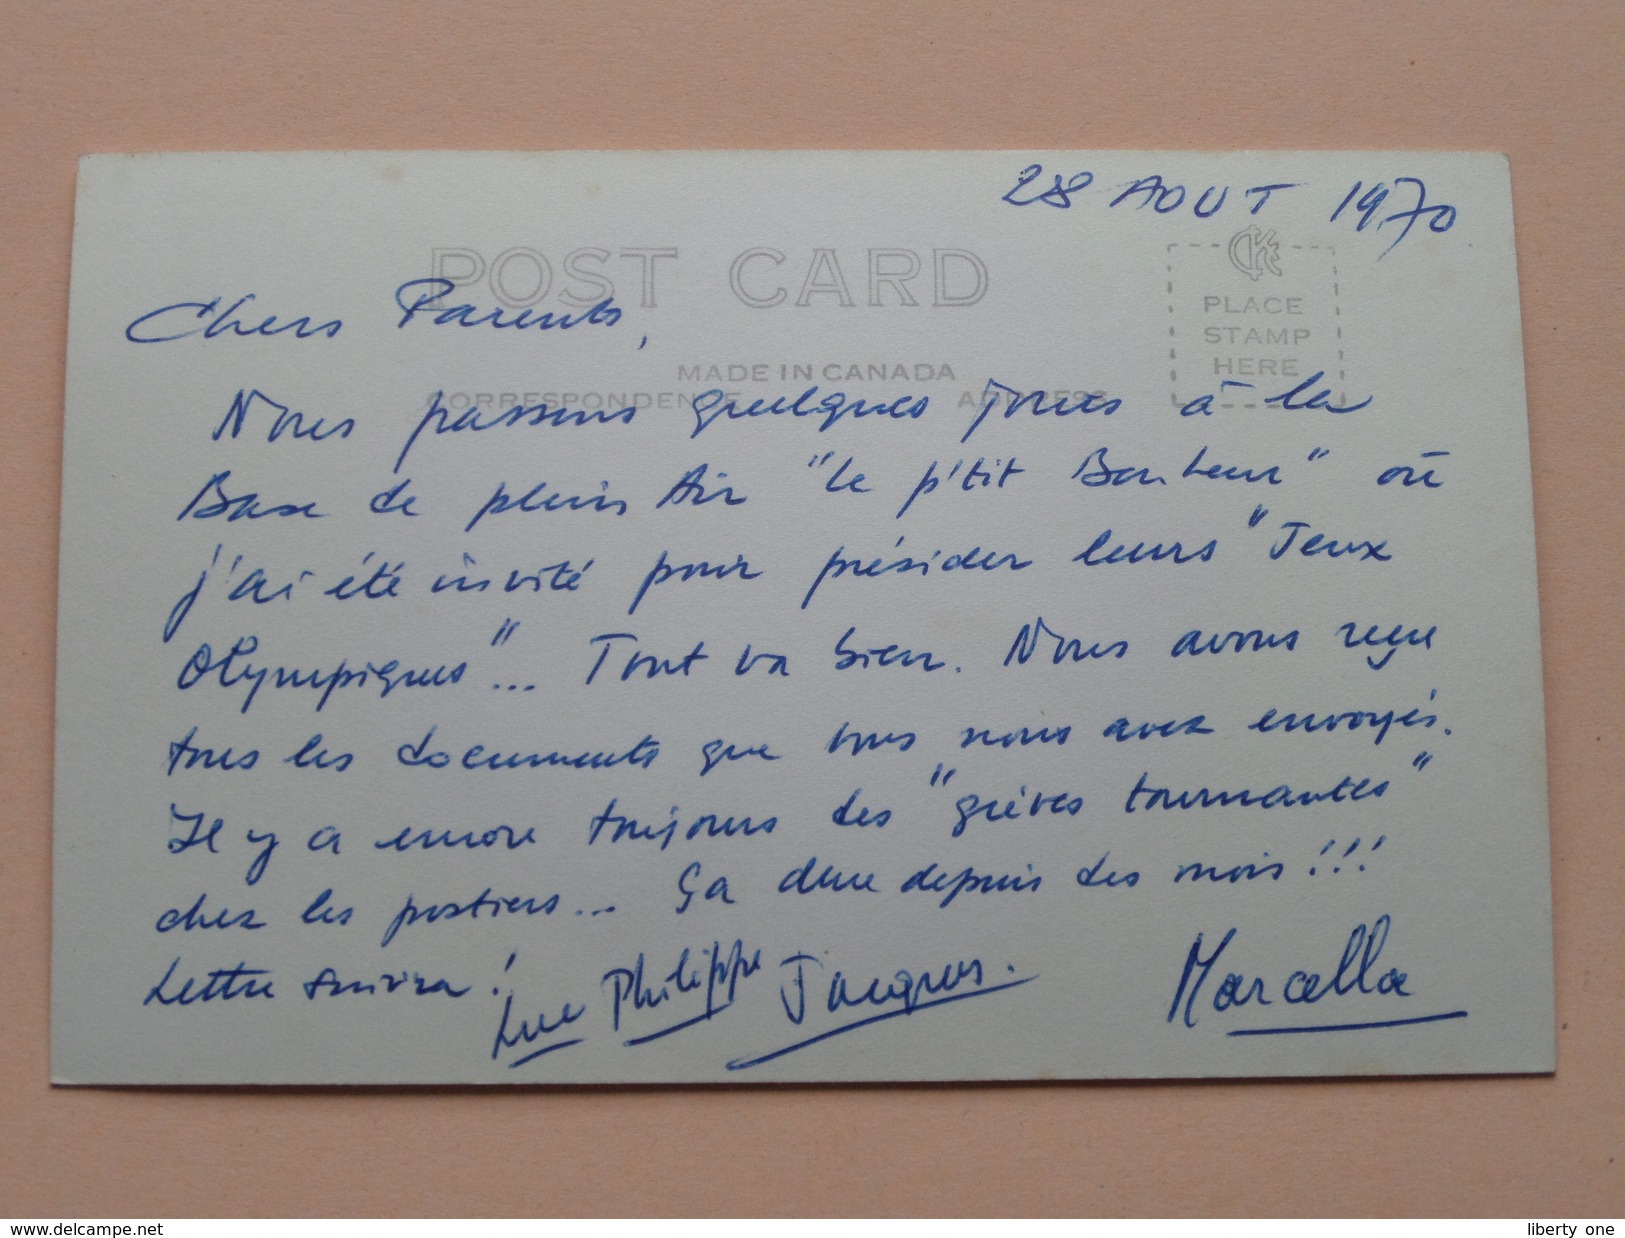 28 AOUT 1970
POST CARD
PLACE
STAMP
HERE
Chers Parents,
MADE IN CANADA
CORRESPONDENCE ADDRESS
Nous passons quelques jours à la
Base de plein Air "le p'tit Bonheur" où
j'ai été invité pour présider leurs "Jeux
Olympiques"... Tout va bien. Nous avons reçu
tous les documents que vous nous avez envoyés.
Il y a encore toujours des "grèves tournantes"
chez les postiers... Ça dure depuis des mois!!!
Lettre suivra!
Luc Philippe Jacques. Marcella
www.delcampe.net
liberty one